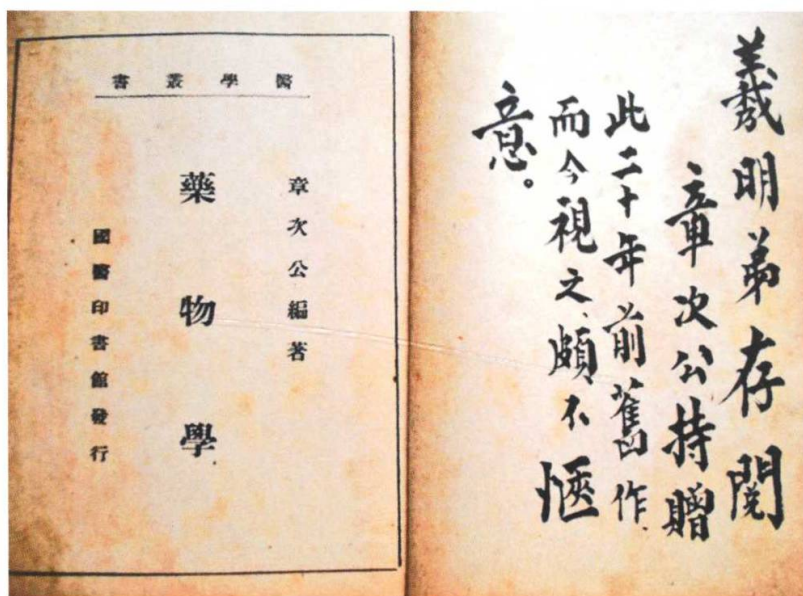 義明弟存閱
章次公持贈
此二十年前舊作、
而今視之、頗不愜
意。
醫學叢書
章次公編著
藥物學
國醫印書館發行